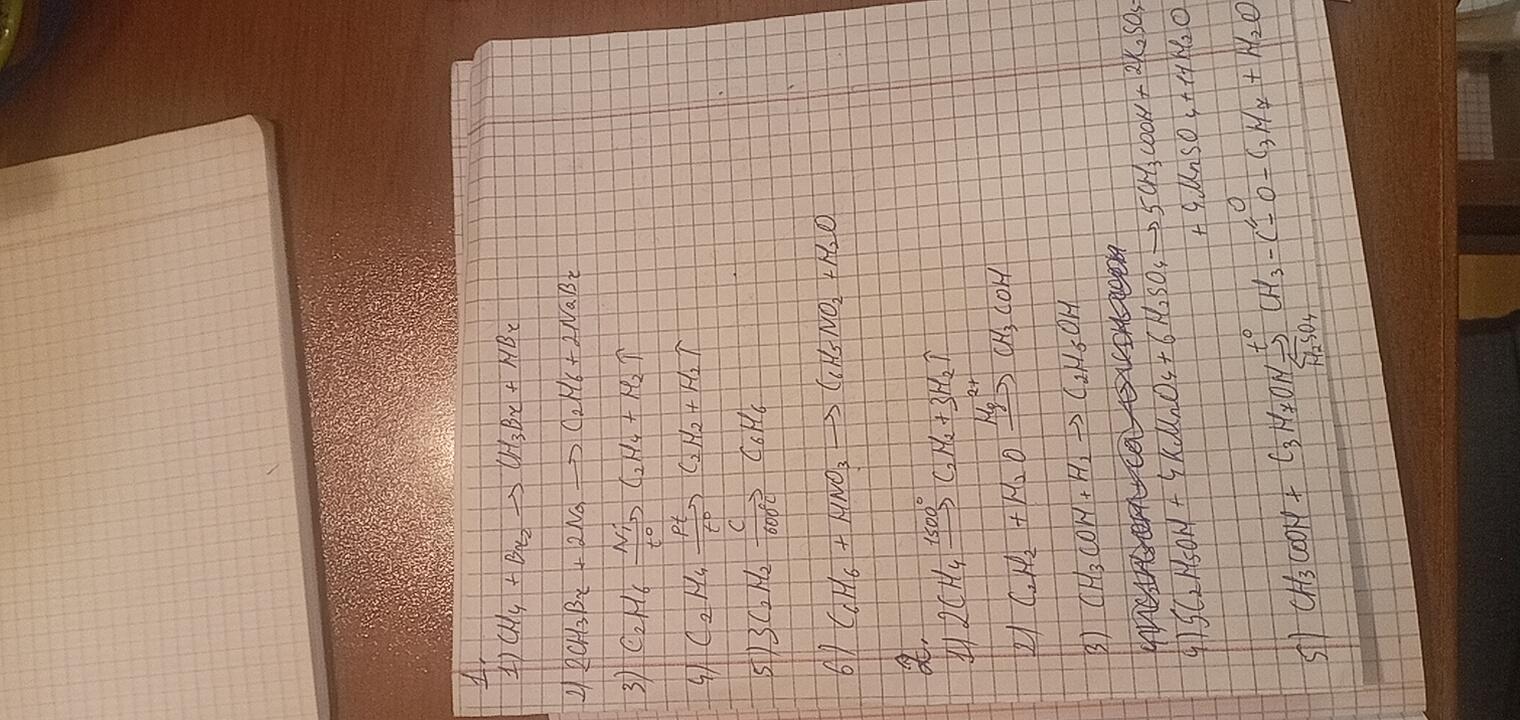 1.
1) CH4 + Br2 → CH3Br + HBr
2) 2CH3Br + 2Na → C2H6 + 2NaBr
3) C2H6 —Ni, t°→ C2H4 + H2↑
4) C2H4 —Pt, t°→ C2H2 + H2↑
5) 3C2H2 —C, 600°C→ C6H6
6) C6H6 + HNO3 → C6H5NO2 + H2O
2.
1) 2CH4 —1500°→ C2H2 + 3H2↑
2) C2H2 + H2O —Hg2+→ CH3COH
3) CH3COH + H2 → C2H5OH
4) 5C2H5OH + 4KMnO4 + 6H2SO4 → 5CH3COOH + 2K2SO4
+ 4MnSO4 + 11H2O
5) CH3COOH + C3H7OH ⇄ t°, H2SO4 CH3-C=O-O-C3H7 + H2O